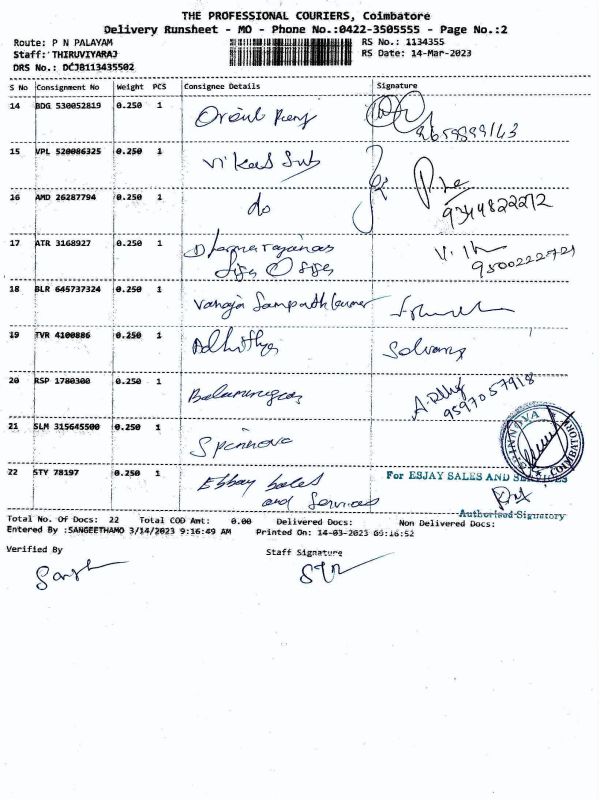 THE PROFESSIONAL COURIERS, Coimbatore
Delivery Runsheet - MO - Phone No.:0422-3505555 - Page No.:2
Route: P N PALAYAM RS No.: 1134355
Staff: THIRUVIYARAJ RS Date: 14-Mar-2023
DRS No.: DCJB113435502
S No Consignment No Weight PCS Consignee Details Signature
14 BDG 530052819 0.250 1
15 VPL 520086325 0.250 1 Vikas Sub
16 AMD 26287794 0.250 1 do 9344822272
17 ATR 3168927 0.250 1 9500222721
18 BLR 645737324 0.250 1 Vanaja Sampathkumar
19 TVR 4100886 0.250 1 Adhithya
20 RSP 1780300 0.250 1 9597057918
21 SLM 315645500 0.250 1 Spinnova
SPINNOVA COIMBATORE
22 STY 78197 0.250 1 For ESJAY SALES AND SERVICES
and Services Authorised Signatory
Total No. Of Docs: 22 Total COD Amt: 0.00 Delivered Docs: Non Delivered Docs:
Entered By :SANGEETHAMO 3/14/2023 9:16:49 AM Printed On: 14-03-2023 09:16:52
Verified By Staff Signature